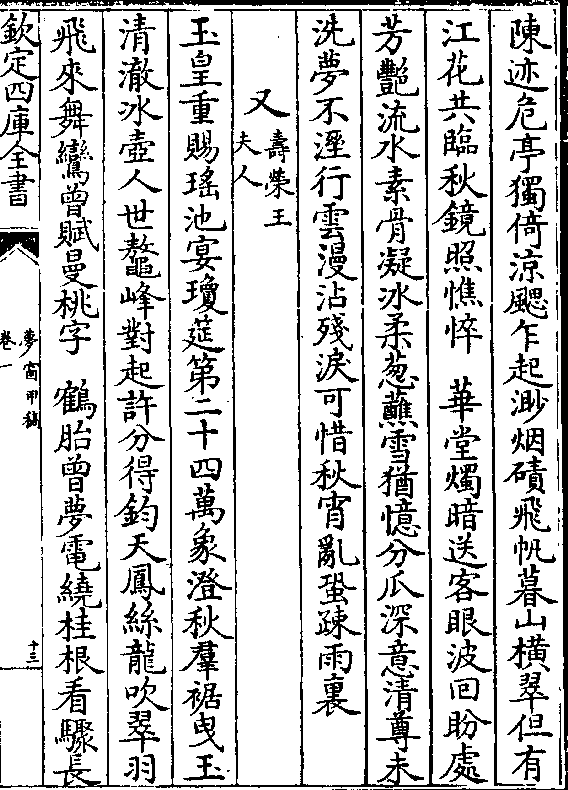 陳迹危亭獨倚涼颸乍起渺烟磧飛帆暮山橫翠但有
江花共臨秋鏡照憔悴　華堂燭暗送客眼波回盼處
芳艷流水素骨凝冰柔葱蘸雪猶憶分瓜深意清尊未
洗夢不溼行雲漫沾殘淚可惜秋宵亂蛩疎雨裏
又壽榮王夫人
玉皇重賜瑤池宴瓊筵第二十四萬象澄秋羣裾曳玉
清澈冰壺人世鼇峰對起許分得鈞天鳳絲龍吹翠羽
飛來舞鸞曾賦曼桃字　鶴胎曾夢電繞桂根看驟長
欽定四庫全書
夢窗甲稿
卷一
十三